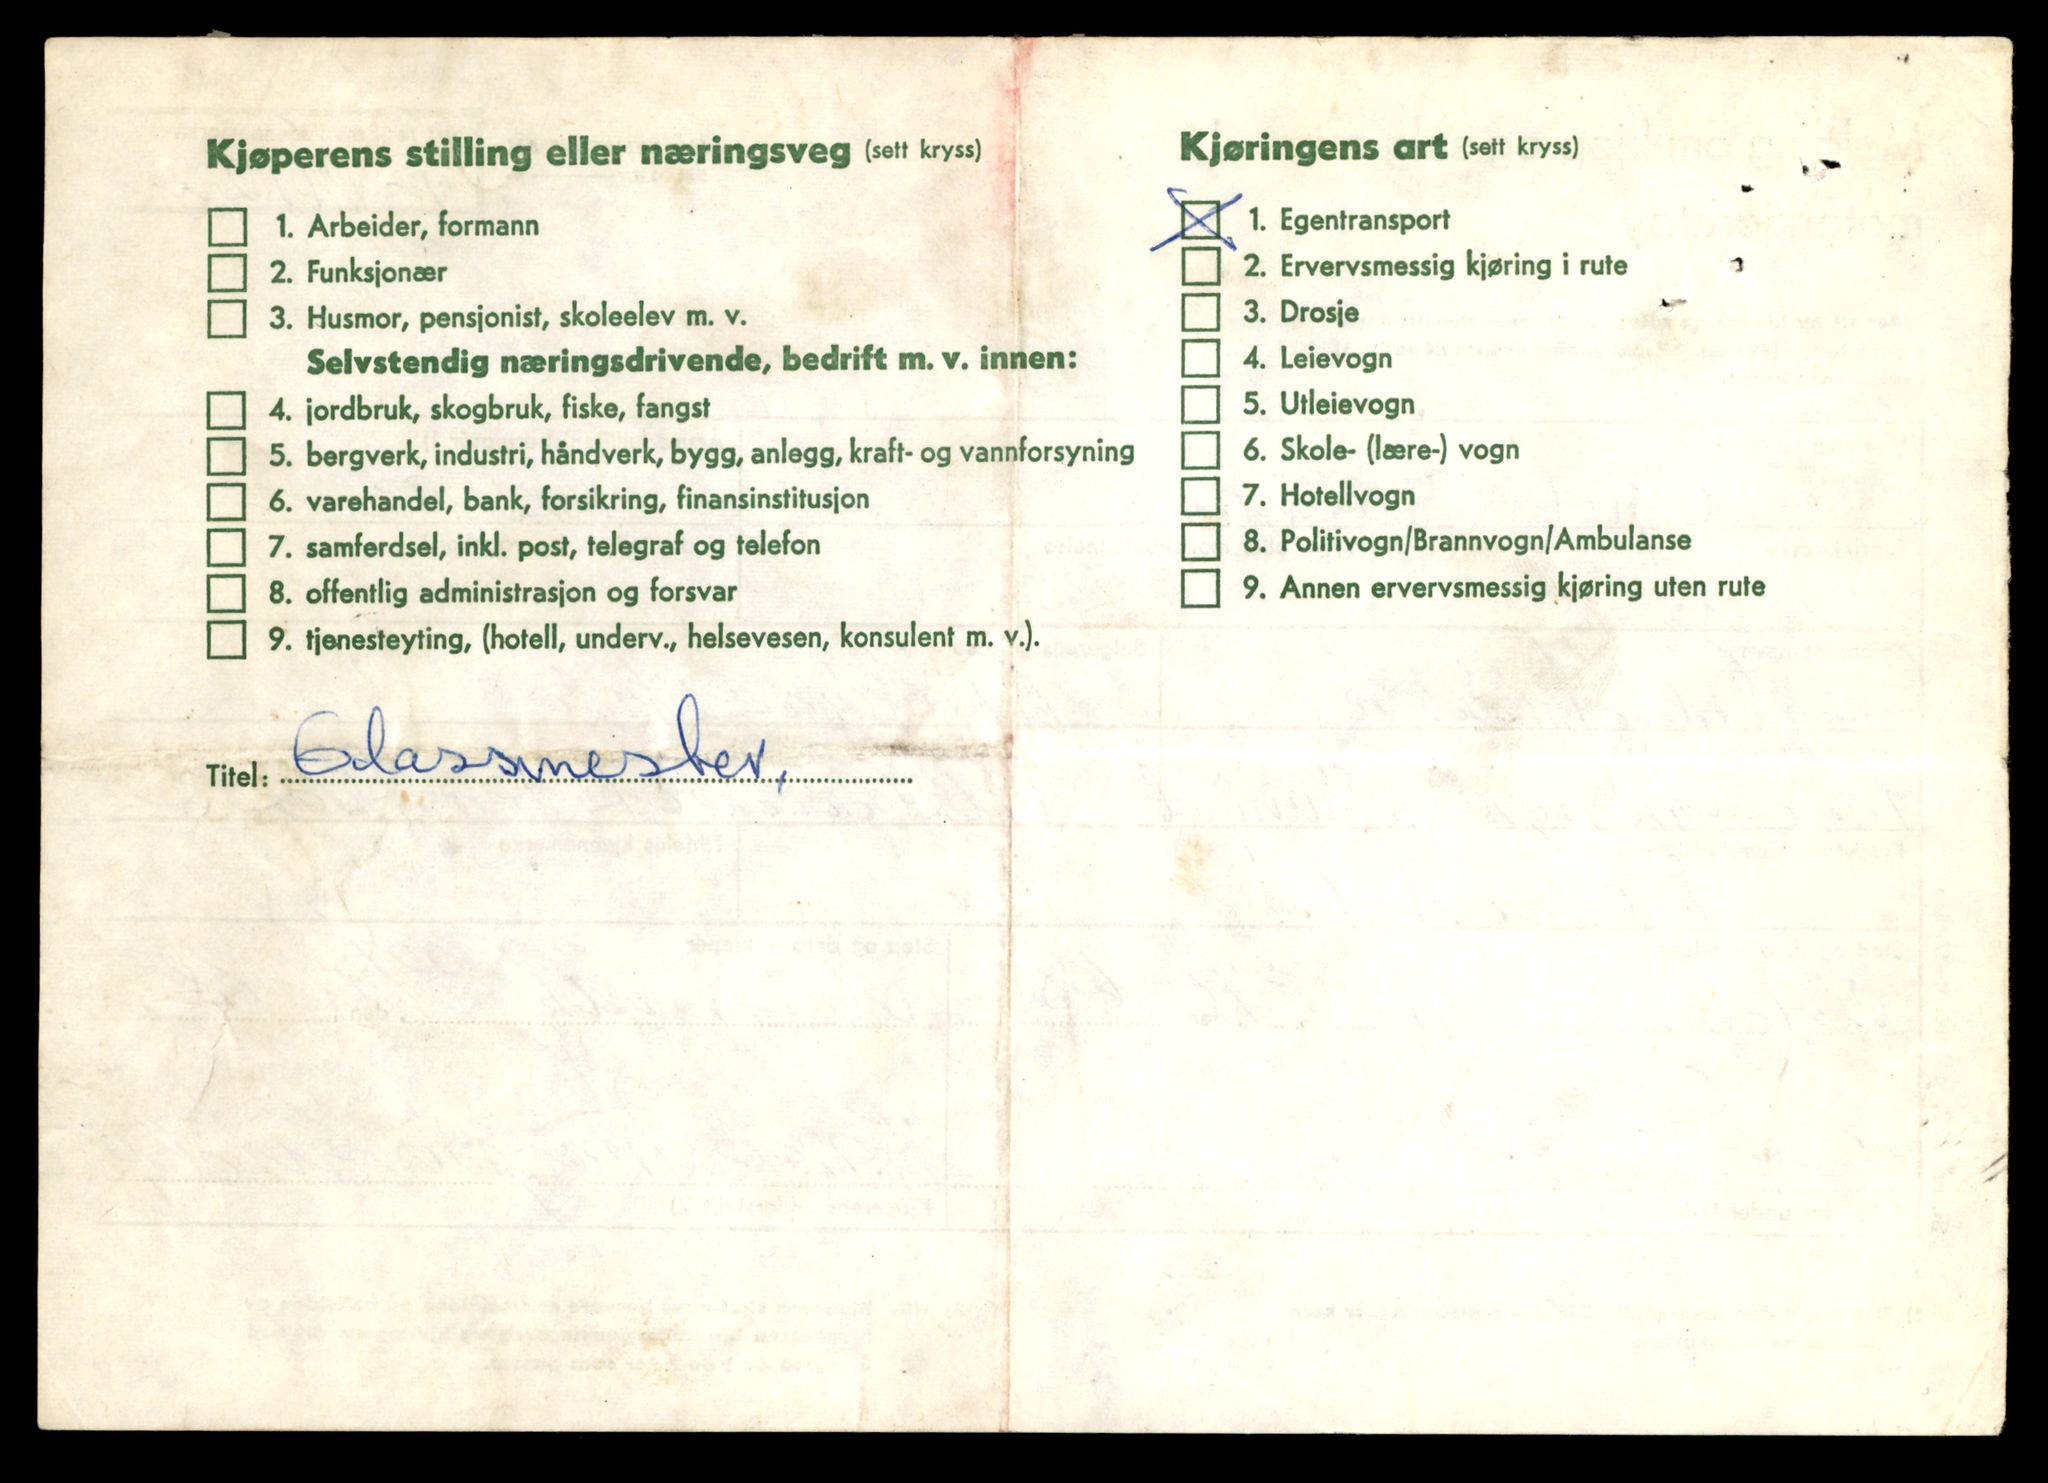 Kjøperens stilling eller næringsveg (sett kryss)
1. Arbeider, formann
2. Funksjonær
3. Husmor, pensjonist, skoleelev m. v.
Selvstendig næringsdrivende, bedrift m. v. innen:
4. jordbruk, skogbruk, fiske, fangst
5. bergverk, industri, håndverk, bygg, anlegg, kraft- og vannforsyning
6. varehandel, bank, forsikring, finansinstitusjon
7. samferdsel, inkl. post, telegraf og telefon
8. offentlig administrasjon og forsvar
9. tjenesteyting, (hotell, underv., helsevesen, konsulent m. v.).
Titel: Glassmester,
Kjøringens art (sett kryss)
1. Egentransport
2. Ervervsmessig kjøring i rute
3. Drosje
4. Leievogn
5. Utleievogn
6. Skole- (lære-) vogn
7. Hotellvogn
8. Politivogn/Brannvogn/Ambulanse
9. Annen ervervsmessig kjøring uten rute